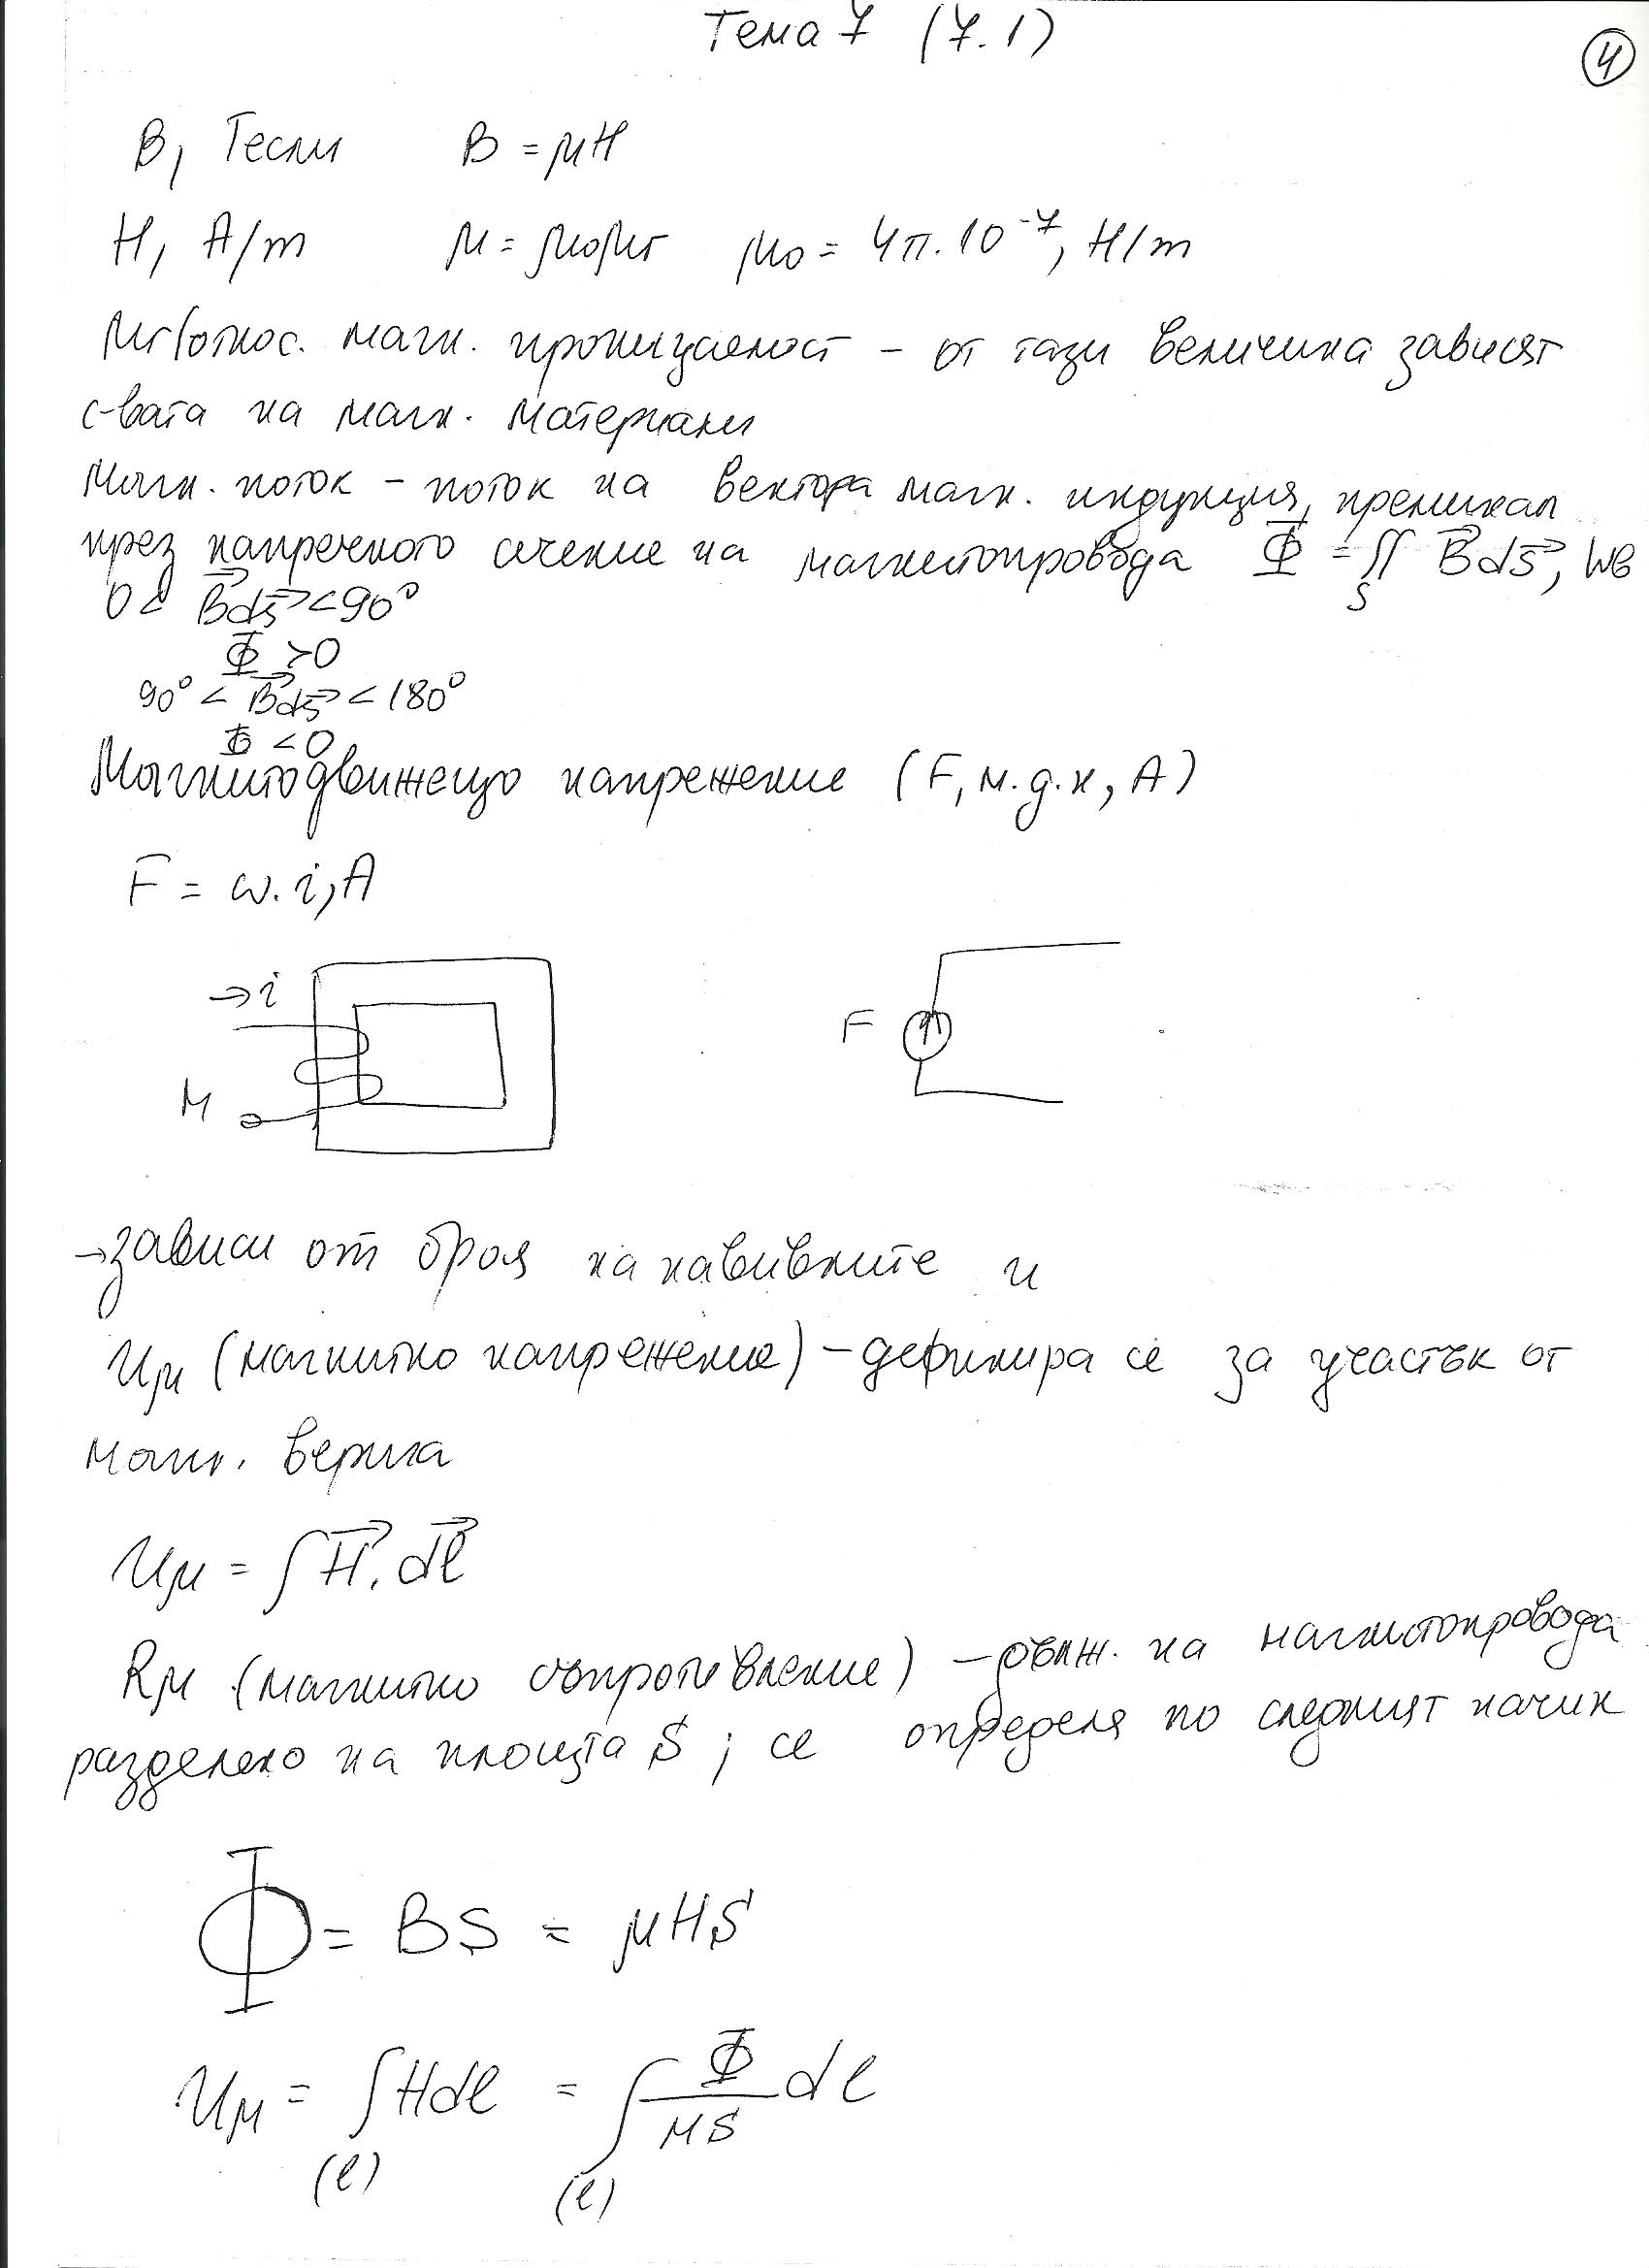 Тема 7 (7.1)
4
B, Тесли B = μH
H, A/m μ = μ0μr μ0 = 4π.10⁻⁷, H/m
μr/относ. магн. проницаемост – от тази величина зависят
с-вата на магн. материали
Магн. поток – поток на вектора магн. индукция, преминал
през напречното сечение на магнитопровода Φ = ∬ B⃗ds⃗, Wb
S
0 < B⃗ds⃗ < 90°
Φ > 0
90° < B⃗ds⃗ < 180°
Φ < 0
Магнитодвижещо напрежение (F, м.д.н, A)
F = w.i, A
→i
F
M
→зависи от броя на навивките и
Uμ (магнитно напрежение) – дефинира се за участък от
магн. верига
Uμ = ∫H⃗.dl⃗
Rμ (магнитно съпротивление) – дълж. на магнитопровода
разделено на площта S ; се определя по следният начин
Φ = BS = μHS
Uμ = ∫Hdl = ∫ Φ/μS dl
(l) (l)